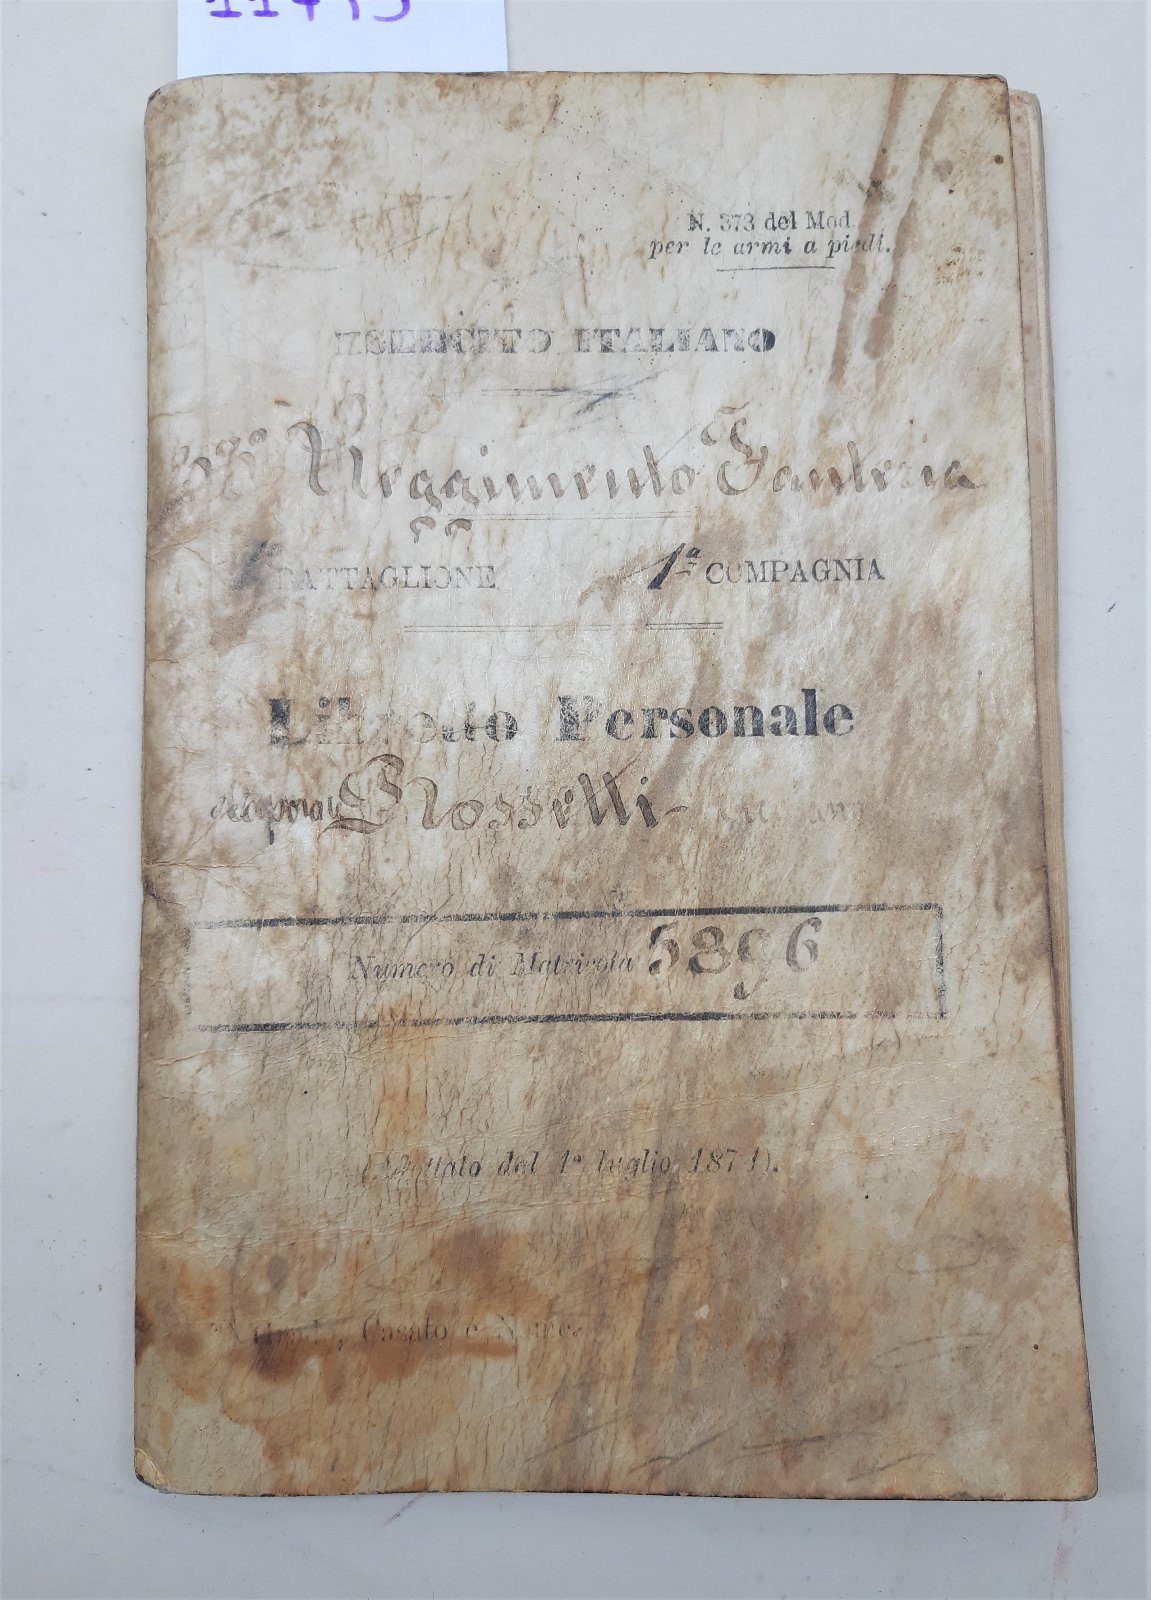 N. 373 del Mod.
per le armi a piedi.
ESERCITO ITALIANO
Reggimento Fanteria
BATTAGLIONE 1ª COMPAGNIA
Libretto Personale
Rosselli
Numero di Matricola 5896
(Adottato dal 1° luglio 1871).
Grado, Casato e Nome